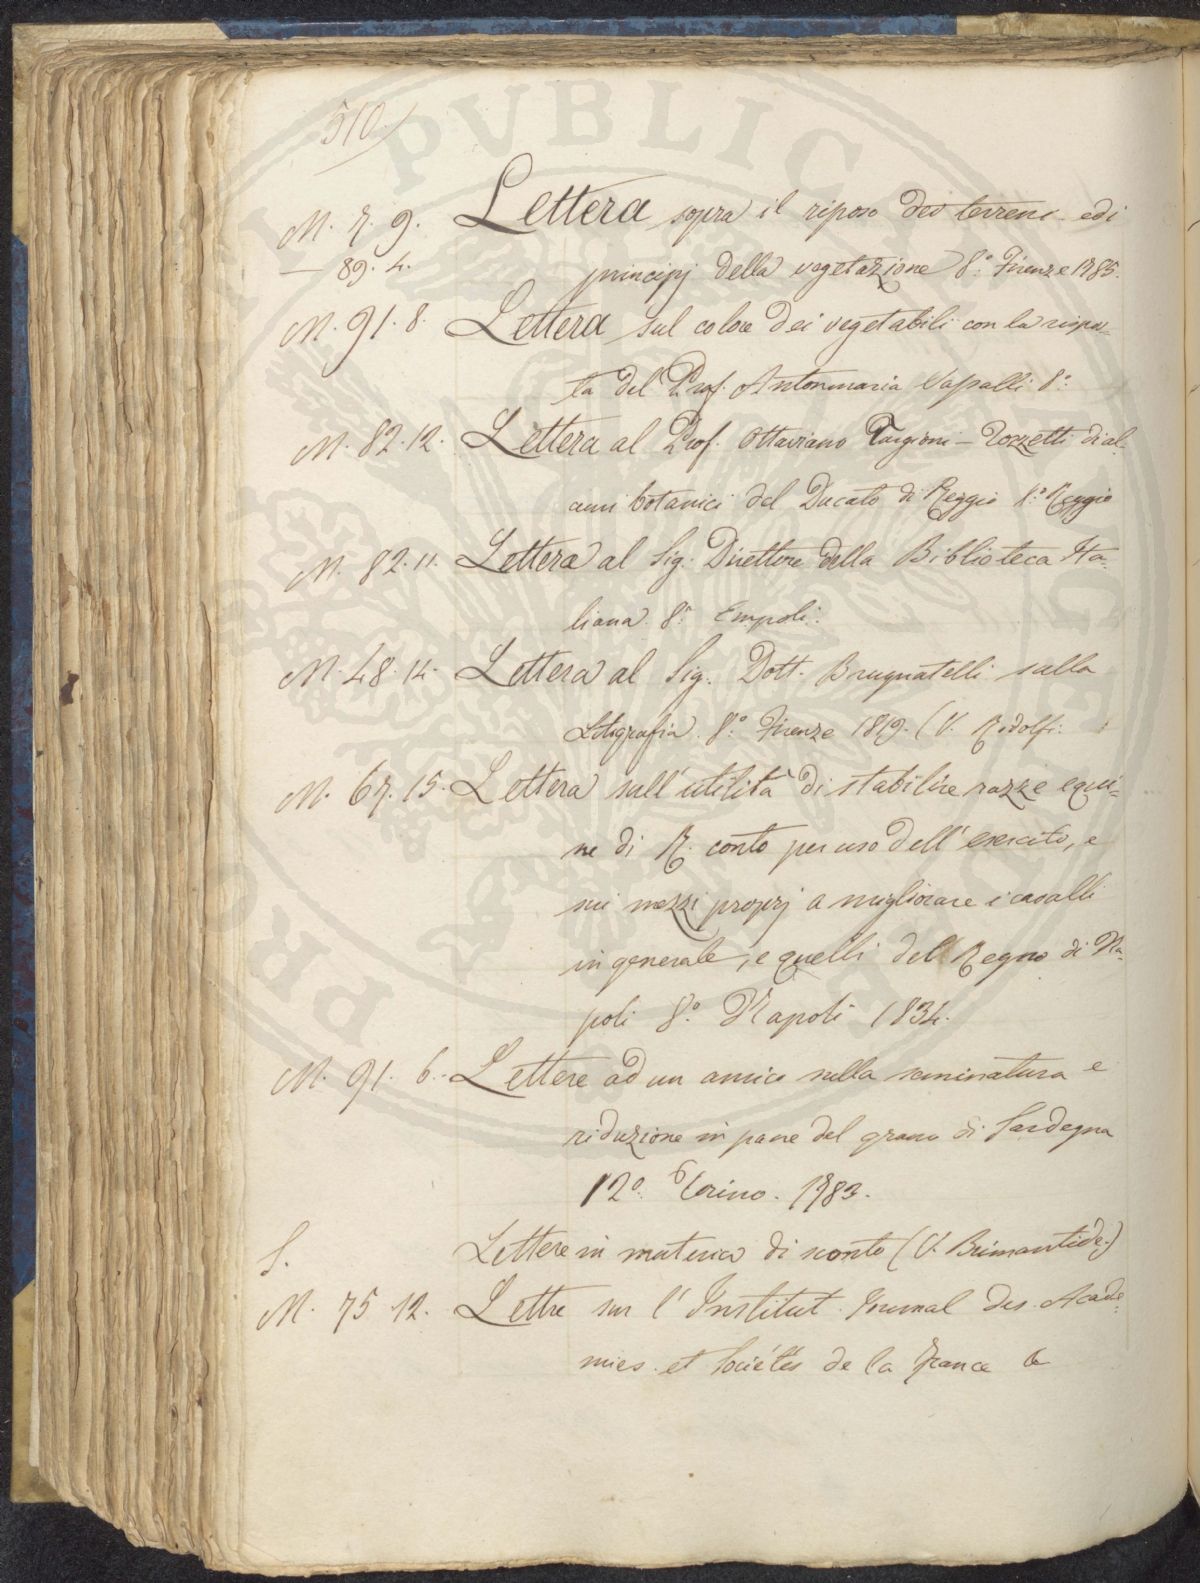 510
M. 7. 9. Lettera sopra il riposo dei terreni edi
— 89. 4. principj della vegetazione 8.° Firenze 1785.
M. 91. 8. Lettera sul colore dei vegetabili con la rispos=
ta del Prof. Antonmaria Vasalli 8.°
M. 82. 12. Lettera al Prof. Ottaviano Targioni-Tozzetti di al=
cuni botanici del Ducato di Reggio 4.° Reggio
M. 82. 11. Lettera al Sig. Direttore della Biblioteca Ita=
liana 8.° Empoli.
M. 48. 14. Lettera al Sig. Dott. Brugnatelli sulla
Litografia 8.° Firenze 1819. (V. Ridolfi
M. 67. 15. Lettera sull'utilità di stabilire razze equi=
ne di R. conto per uso dell'esercito, e
sui mezzi proprj a migliorare i cavalli
in generale, e quelli del Regno di Na=
poli 8.° Napoli 1834.
M. 91. 6. Lettere ad un amico sulla seminatura e
riduzione in pane del grano di Sardegna
12.° Torino. 1783.
S. Lettere in materia di sconto (V. Brimantide.)
M. 75 12. Lettre sur l'Institut Journal des Acade=
mies et Societés de la France
PVBLIC